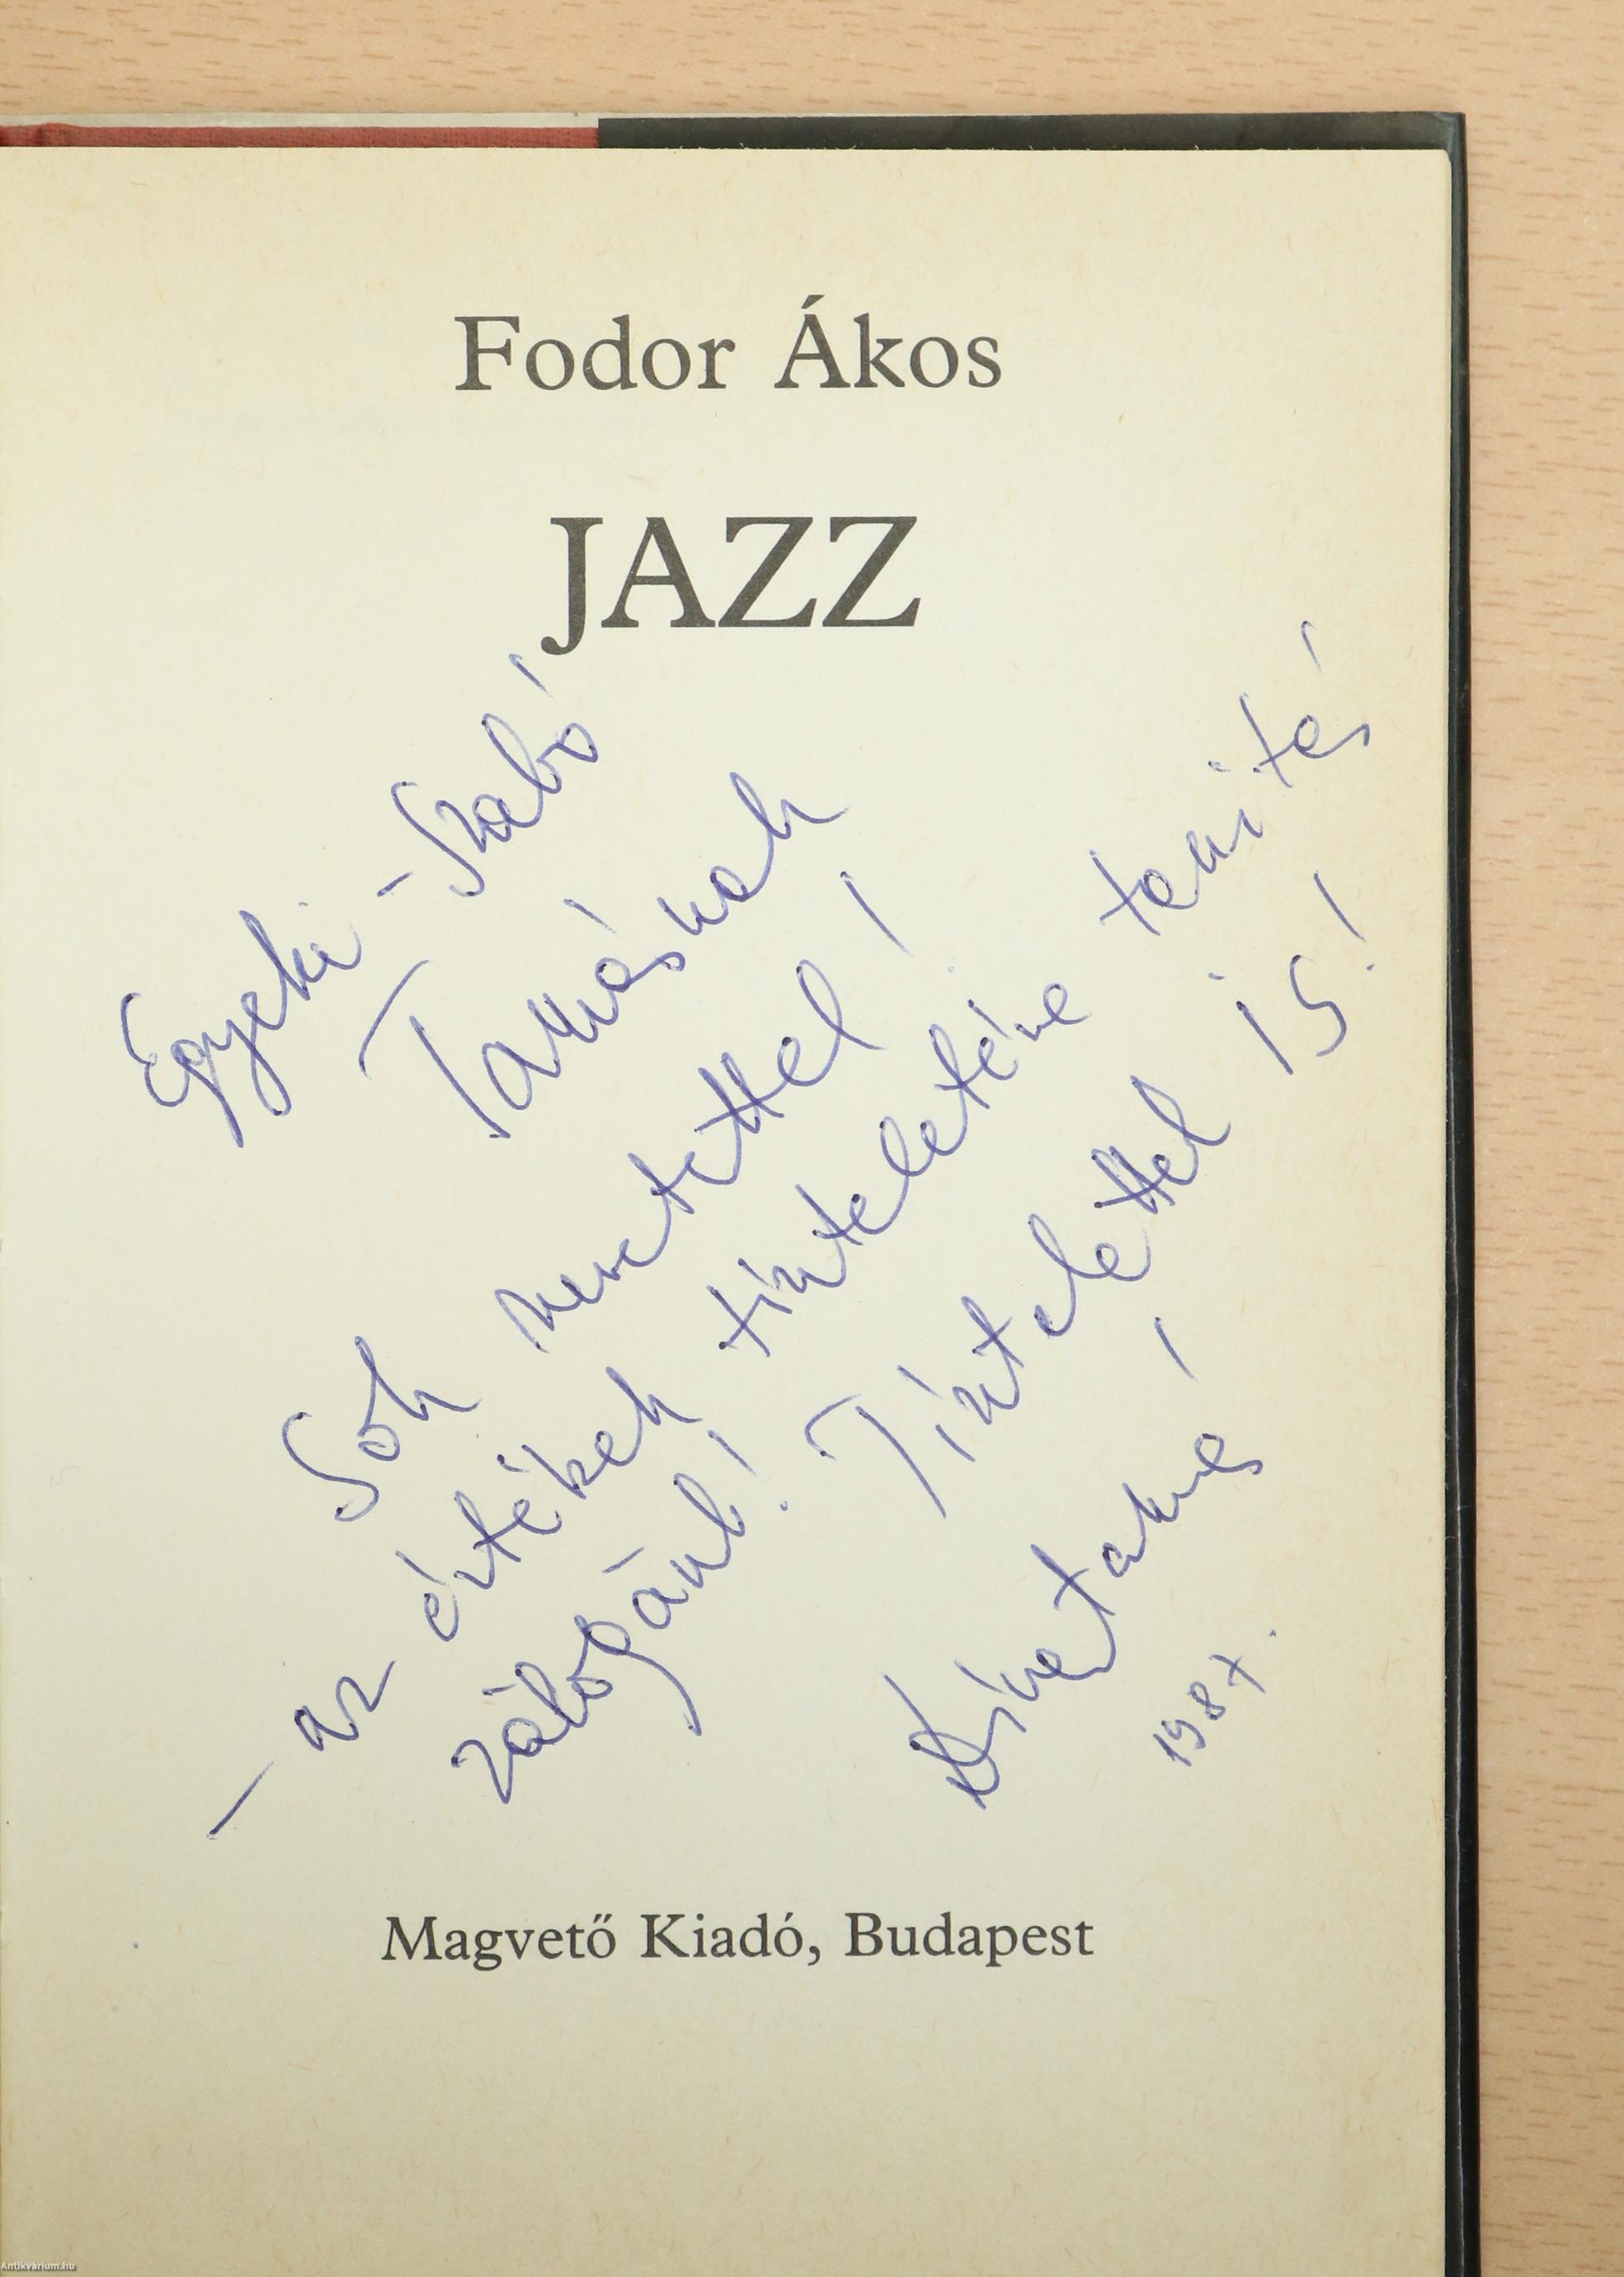 Fodor Ákos
JAZZ
Egyeki-Szabó
Tamásnak
Sok szeretettel!
– az értékek tiszteletére tanítás
zálogául! Tisztelettel is!
1987.
Magvető Kiadó, Budapest
Antikvarium.hu